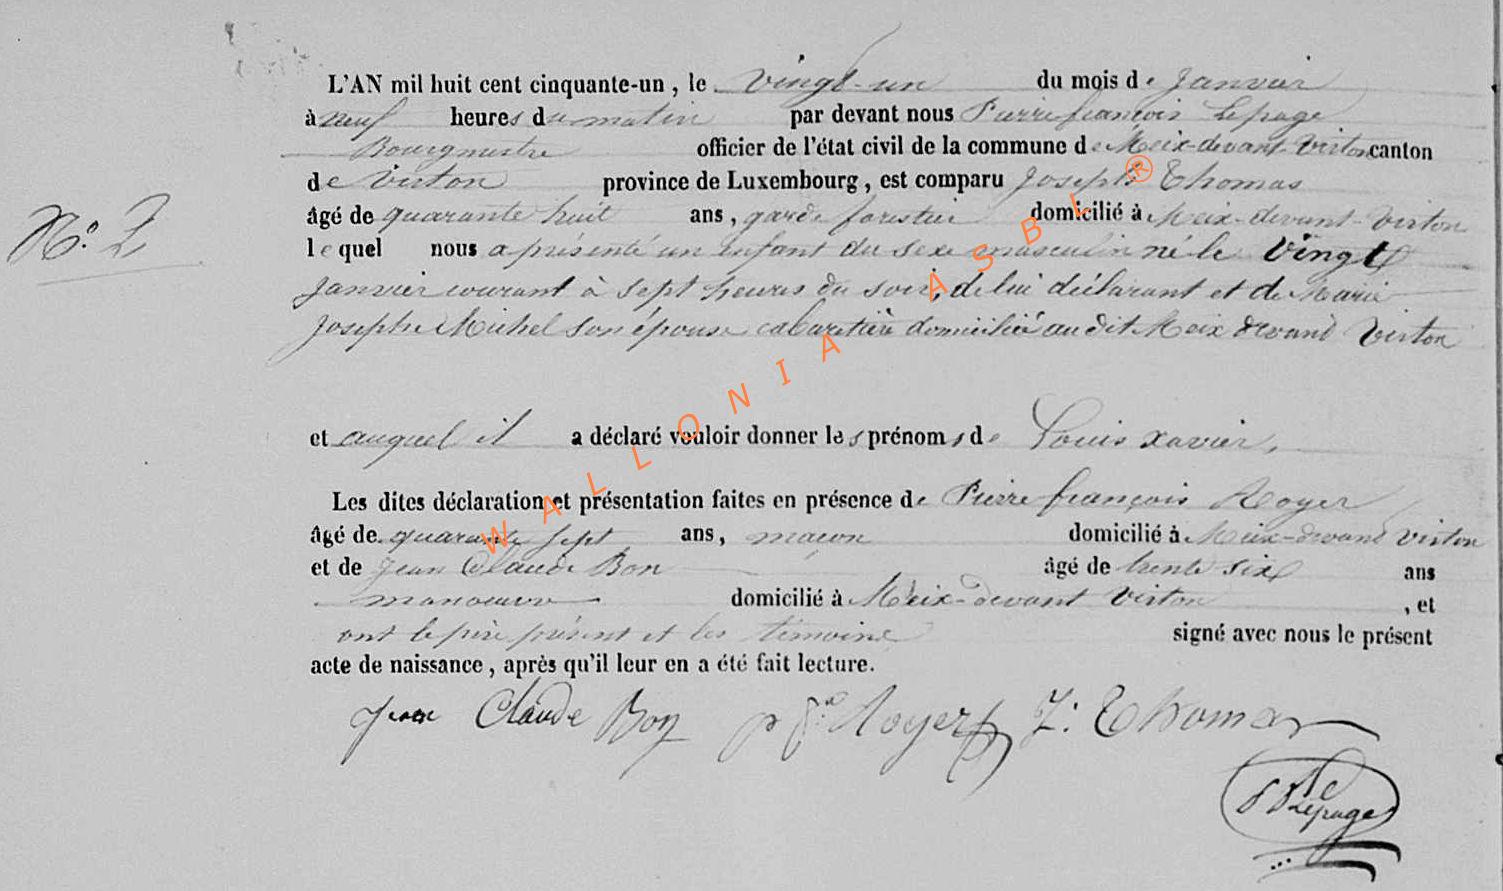 L'AN mil huit cent cinquante-un, le vingt-un du mois de Janvier
à neuf heures du matin par devant nous Pierre françois Lepage
Bourgmestre officier de l'état civil de la commune de Meix-devant-Virton canton
de Virton province de Luxembourg, est comparu Joseph Thomas
âgé de quarante huit ans, garde forestier domicilié à Meix-devant-Virton
N.º 2
lequel nous a présenté un enfant du sexe masculin né le vingt
Janvier courant à sept heures du soir, de lui déclarant et de Marie
Josephe Michel son épouse cabaretière domiciliée audit Meix devant Virton
et auquel il a déclaré vouloir donner les prénoms de Louis Xavier.
Les dites déclaration et présentation faites en présence de Pierre françois Royer
âgé de quarante sept ans, maçon domicilié à Meix-devant Virton
et de Jean Claude Bon âgé de trente six ans
manoeuvre domicilié à Meix-devant Virton, et
ont le père présent et les témoins signé avec nous le présent
acte de naissance, après qu'il leur en a été fait lecture.
Jean Claude Bon p f. Royer J: Thomas
Lepage
WALLONIA ASBL ®